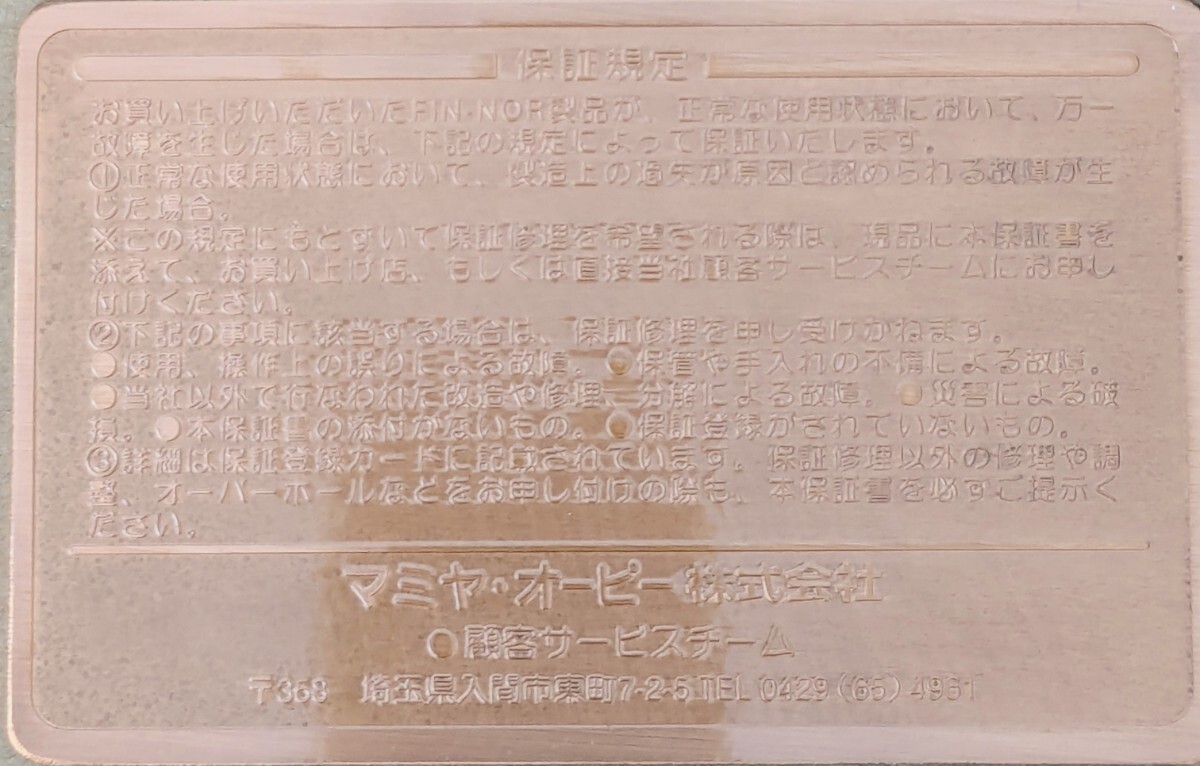 保証規定
お買い上げいただいたFIN-NOR製品が、正常な使用状態において、万一
故障を生じた場合は、下記の規定によって保証いたします。
①正常な使用状態において、製造上の過失が原因と認められる故障が生
じた場合。
※この規定にもとずいて保証修理を希望される際は、現品に本保証書を
添えて、お買い上げ店、もしくは直接当社顧客サービスチームにお申し
付けください。
②下記の事項に該当する場合は、保証修理を申し受けかねます。
●使用、操作上の誤りによる故障。●保管や手入れの不備による故障。
●当社以外で行なわれた改造や修理、分解による故障。●災害による破
損。●本保証書の添付がないもの。●保証登録がされていないもの。
③詳細は保証登録カードに記載されています。保証修理以外の修理や調
整、オーバーホールなどをお申し付けの際も、本保証書を必ずご提示く
ださい。
マミヤ・オーピー株式会社
○顧客サービスチーム
〒358 埼玉県入間市東町7-2-5 TEL 0429 (65)